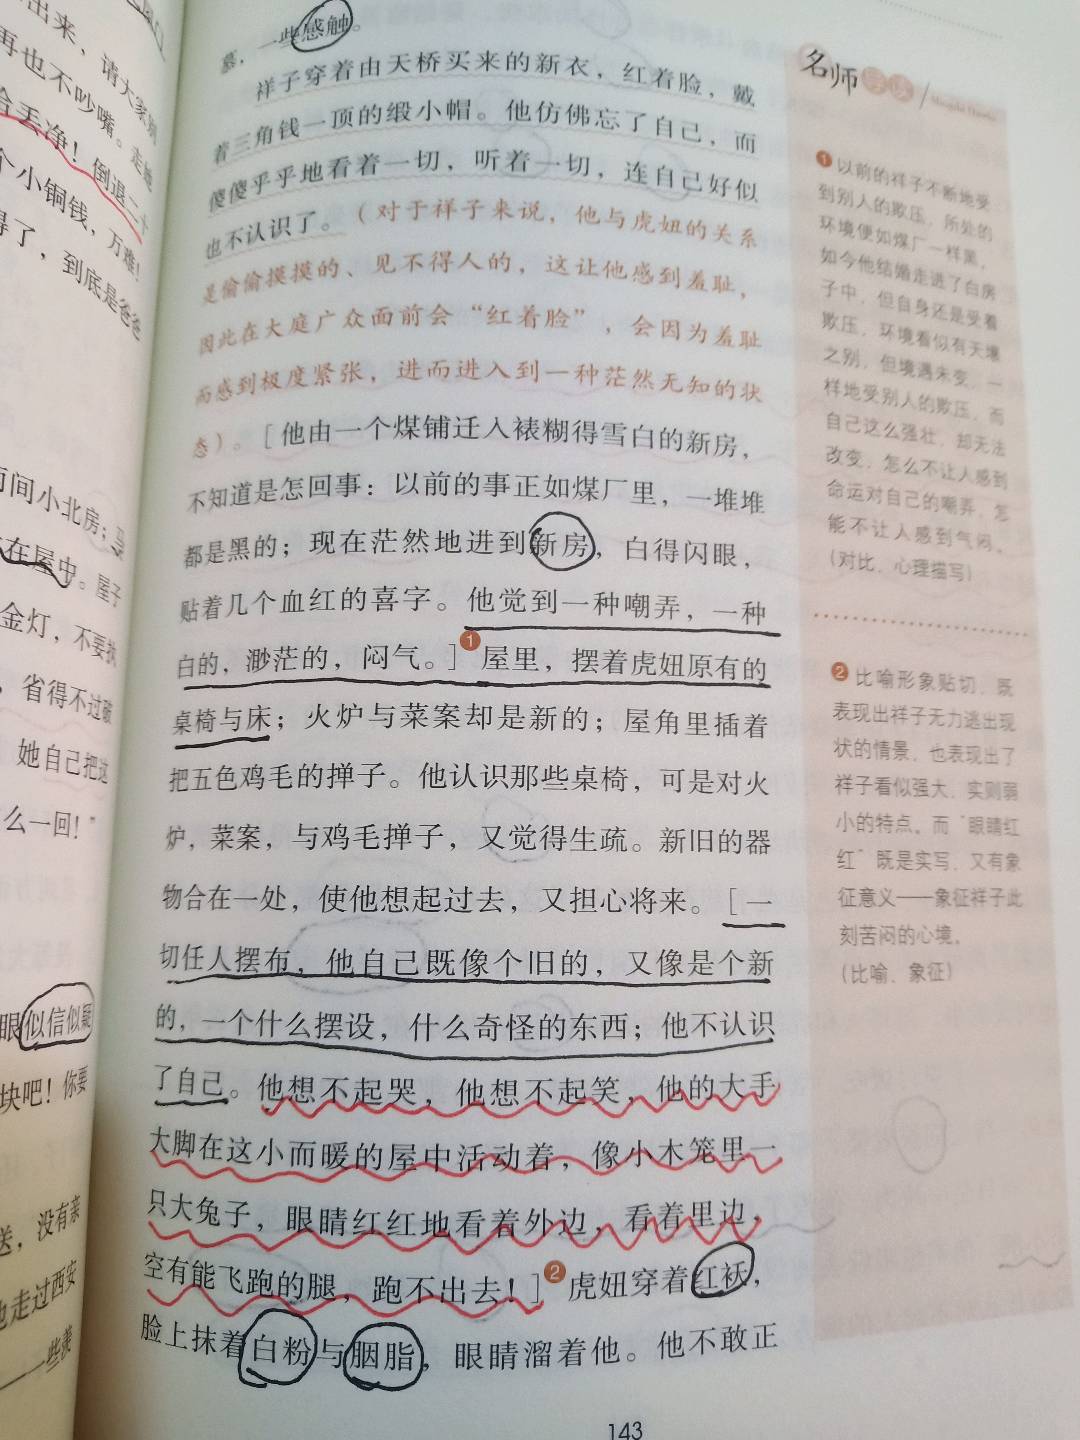 出来、请大家别
再也不吵嘴。走她
合丢净！倒退二十
个小铜钱，万难！
得了，到底是爸爸
两间小北房；马
在屋中。屋子
金灯，不要执
，省得不过破
她自己把这
么一回！”
眼似信似疑
块吧！你要
送，没有亲
也走过西安
——一些羡
慕，一些感触。
祥子穿着由天桥买来的新衣，红着脸，戴
着三角钱一顶的缎小帽。他仿佛忘了自己，而
傻傻乎乎地看着一切，听着一切，连自己好似
也不认识了。（对于祥子来说，他与虎妞的关系
是偷偷摸摸的、见不得人的，这让他感到羞耻，
因此在大庭广众面前会“红着脸”，会因为羞耻
而感到极度紧张，进而进入到一种茫然无知的状
态）。［他由一个煤铺迁入裱糊得雪白的新房，
不知道是怎回事：以前的事正如煤厂里，一堆堆
都是黑的；现在茫然地进到新房，白得闪眼，
贴着几个血红的喜字。他觉到一种嘲弄，一种
白的，渺茫的，闷气。］1屋里，摆着虎妞原有的
桌椅与床；火炉与菜案却是新的；屋角里插着
把五色鸡毛的掸子。他认识那些桌椅，可是对火
炉，菜案，与鸡毛掸子，又觉得生疏。新旧的器
物合在一处，使他想起过去，又担心将来。［一
切任人摆布，他自己既像个旧的，又像是个新
的，一个什么摆设，什么奇怪的东西；他不认识
了自己。他想不起哭，他想不起笑，他的大手
大脚在这小而暖的屋中活动着，像小木笼里一
只大兔子，眼睛红红地看着外边，看着里边，
空有能飞跑的腿，跑不出去！］2虎妞穿着红袄，
脸上抹着白粉与胭脂，眼睛溜着他。他不敢正
143
名师导读
1以前的祥子不断地受
到别人的欺压，所处的
环境便如煤厂一样黑，
如今他结婚走进了白房
子中，但自身还是受着
欺压，环境看似有天壤
之别，但境遇未变，一
样地受别人的欺压，而
自己这么强壮，却无法
改变，怎么不让人感到
命运对自己的嘲弄，怎
能不让人感到气闷。
（对比、心理描写）
2比喻形象贴切，既
表现出祥子无力逃出现
状的情景，也表现出了
祥子看似强大，实则弱
小的特点。而“眼睛红
红”既是实写，又有象
征意义——象征祥子此
刻苦闷的心境。
（比喻、象征）